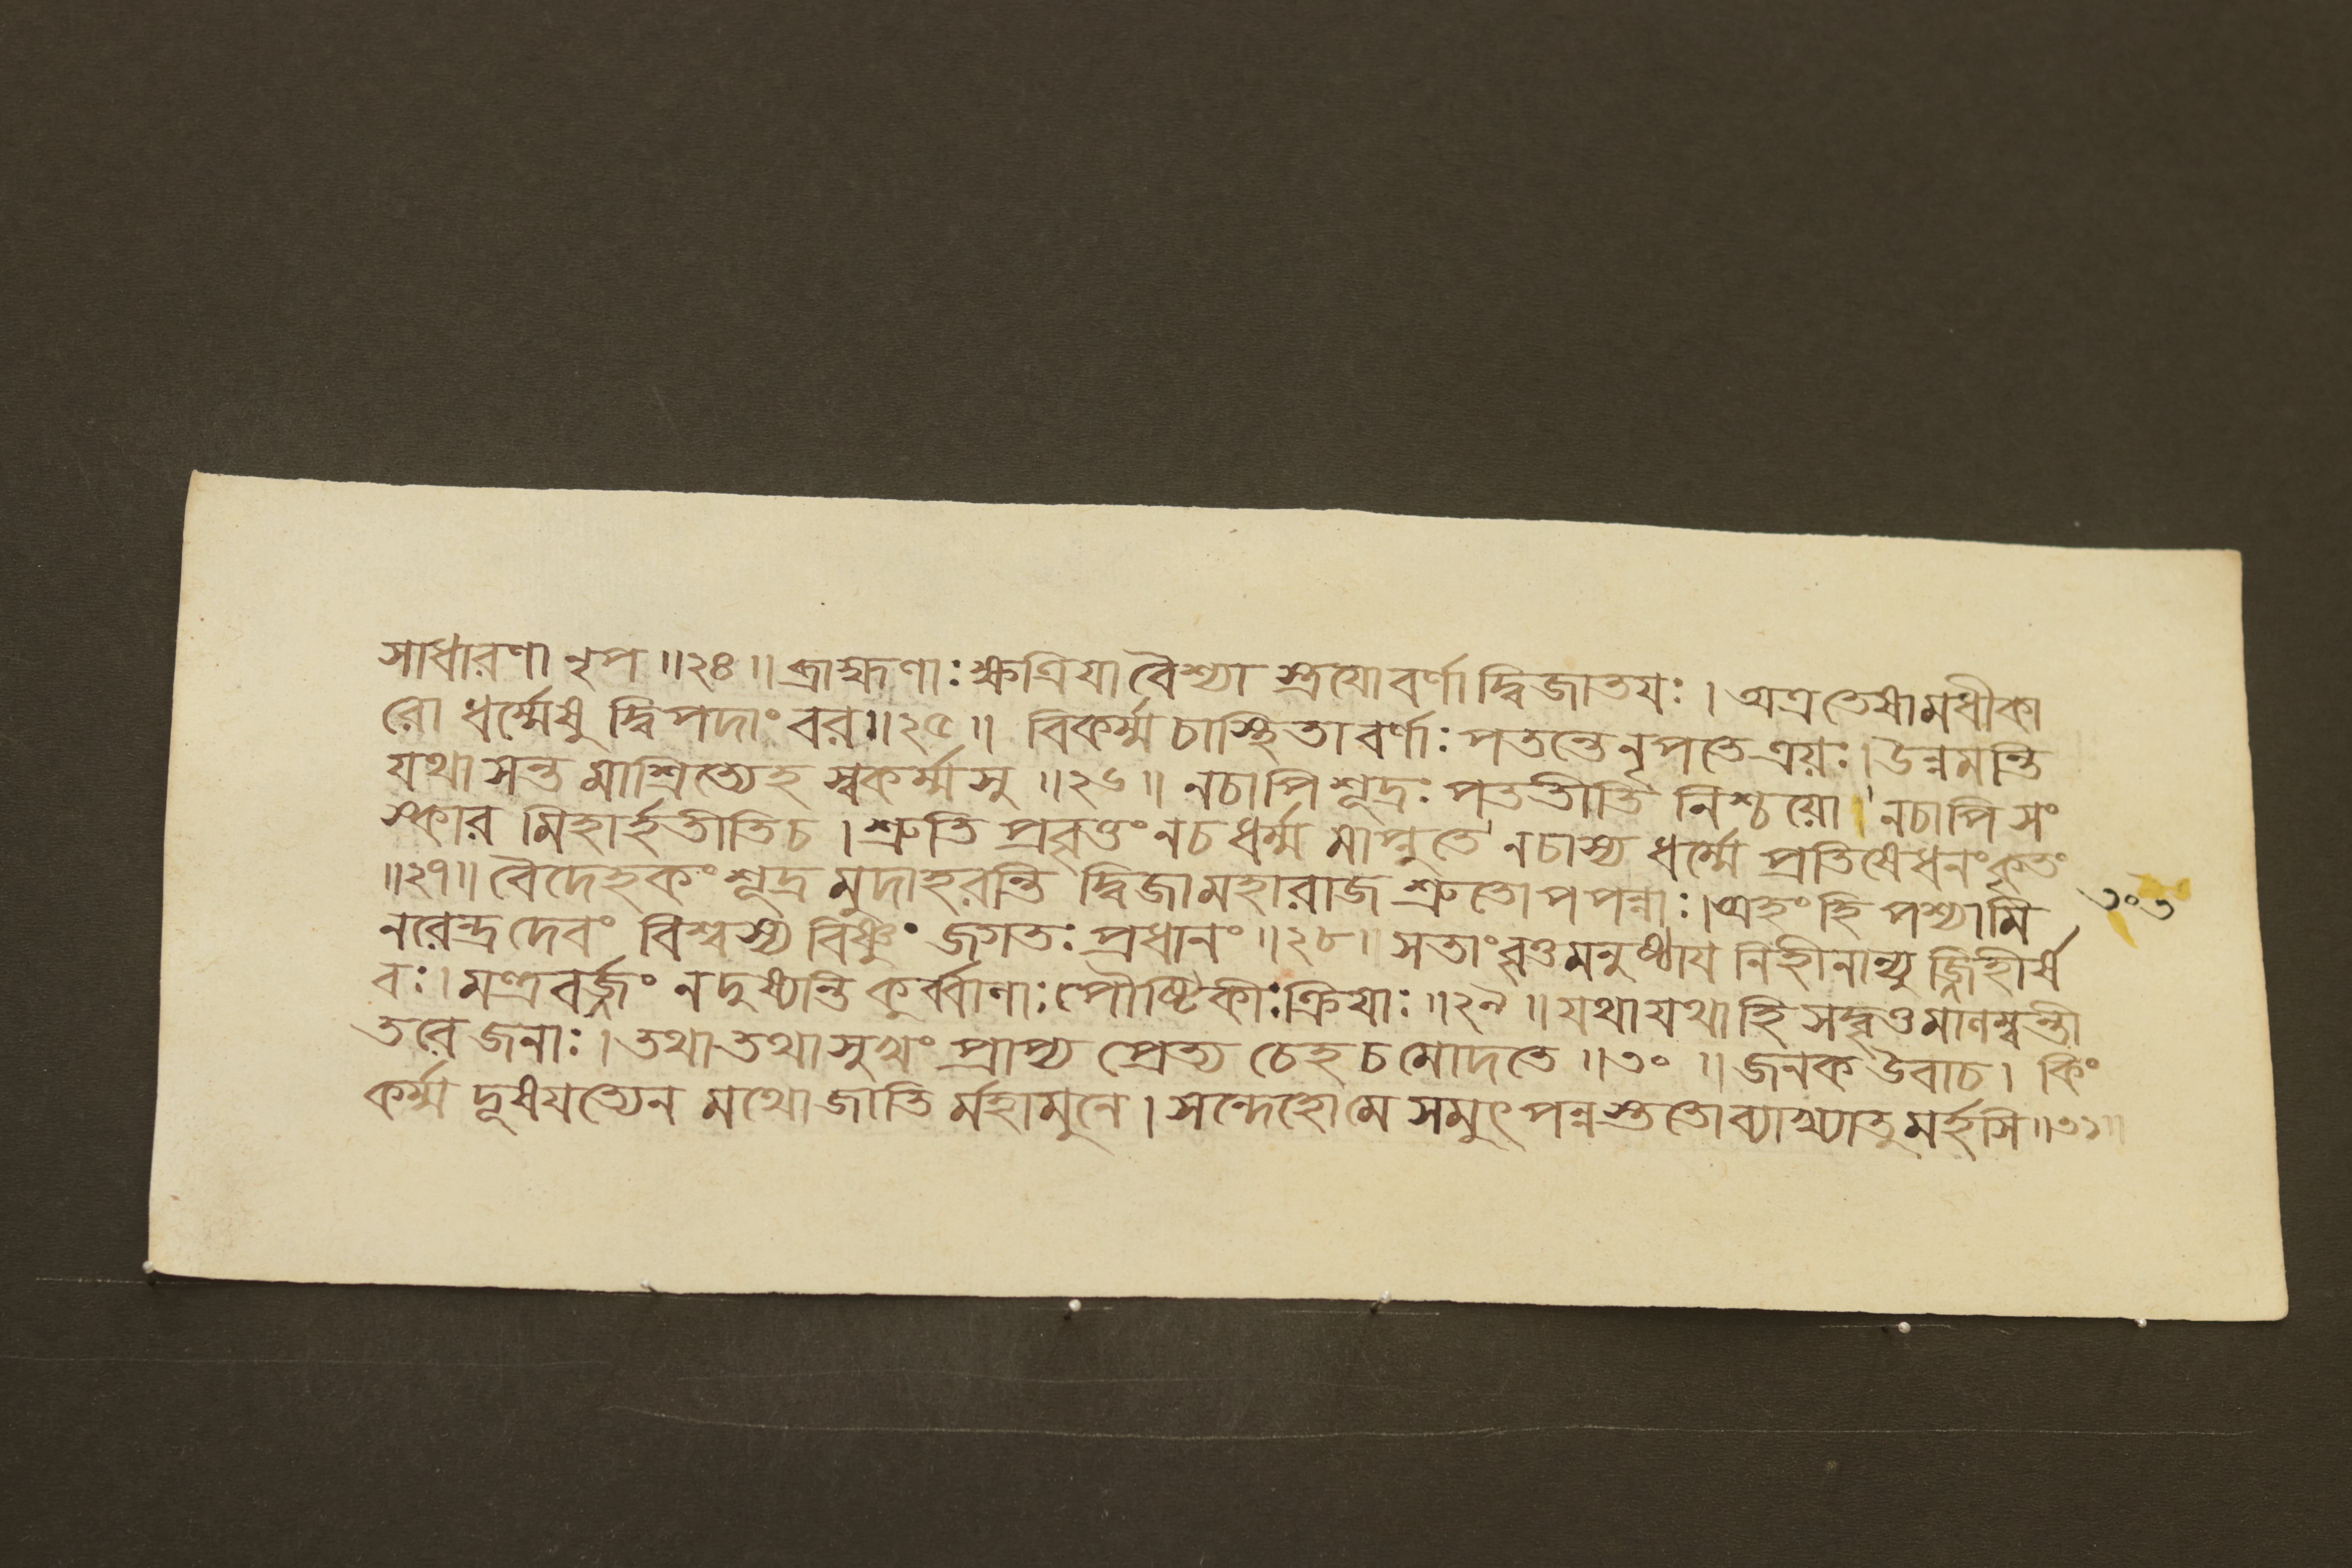 সাধারণা নৃপ ॥২৪॥ ব্রাহ্মণাঃ ক্ষত্রিযা বৈশ্যা স্ত্রযোবর্ণা দ্বিজাতযঃ । অত্রতেষামধীকা
রো ধর্ম্মেষু দ্বিপদাং বর॥২৫॥ বিকর্ম্ম চাস্থিতা বর্ণাঃ পতন্তেনৃপতে ত্রয়ঃ। উন্নমন্তি
যথা সন্ত মাশ্রিত্যেহ স্বকর্ম্মসু ॥২৬॥ নচাপি শূদ্রঃ পততীর্ত্তি নিশ্চয়ো । নচাপি সং
স্কার মিহার্হতীতিচ । শ্রুতি প্রবৃত্তং নচ ধর্ম্ম মাপ্নুতে নচাস্য ধর্ম্মে প্রতিষেধনংকৃতং
॥২৭॥ বৈদেহকং শূদ্র মুদাহরন্তি দ্বিজামহারাজ শ্রুতোপপন্নাঃ। অহংহি পশ্যামি
৩০৩
নরেন্দ্রদেবং বিশ্বস্য বিষ্ণুং জগতঃ প্রধানং ॥২৮॥ সতাংবৃত্তমনুষ্ঠায নিহীনান্যু জ্জিহীর্ষ
বঃ। মন্ত্রবর্জ্জং নদুষ্যন্তি কুর্ব্বাণাঃ পৌষ্টিকীঃ ক্রিযাঃ ॥২৯॥ যথাযথাহি সদ্বৃত্তমানম্বন্তী
তরে জনাঃ । তথাতথা সুখং প্রাপ্য প্রেত্য চেহ চমোদতে ॥৩০॥ জনক উবাচ । কিং
কর্ম্ম দূষযত্যেন মথোজাতি র্মহামুনে । সন্দেহোমে সমুৎপন্নস্ততোব্যাখ্যাতুমর্হসি ॥৩১॥